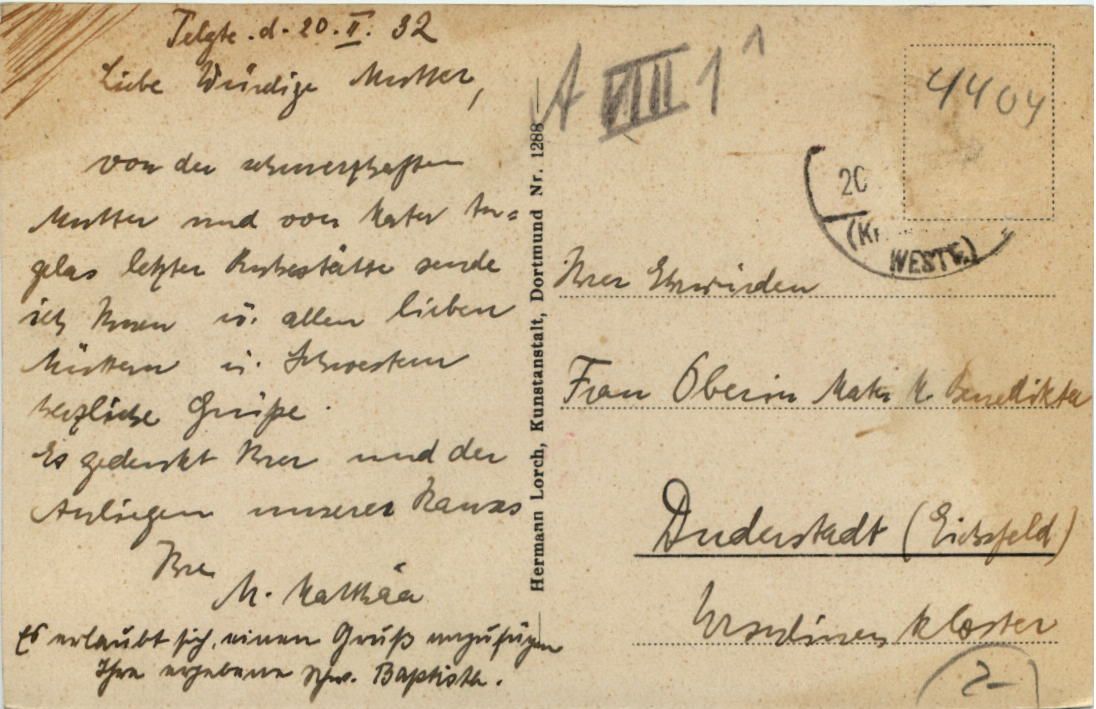 Telgte. d. 20. II. 32
Liebe Würdige Mutter,
von der schmerzhaften
Mutter und von Mater An=
gelas letzter Ruhestätte sende
ich Ihnen u. allen lieben
Müttern u. Schwestern
herzliche Grüße.
Es gedenkt Ihrer und der
Anliegen unseres Hauses
Ihre
M. Matthäa
Es erlaubt sich, einen Gruß anzufügen
Ihre ergebene Schw. Baptista.
Hermann Lorch, Kunstanstalt, Dortmund Nr. 1288
A VIII 1^1
4404
20
(Kr
WESTF.)
Ihrer Ehrwürden
Frau Oberin Mater M. Benedikta
Duderstadt (Eichsfeld)
Ursulinen kloster
2-